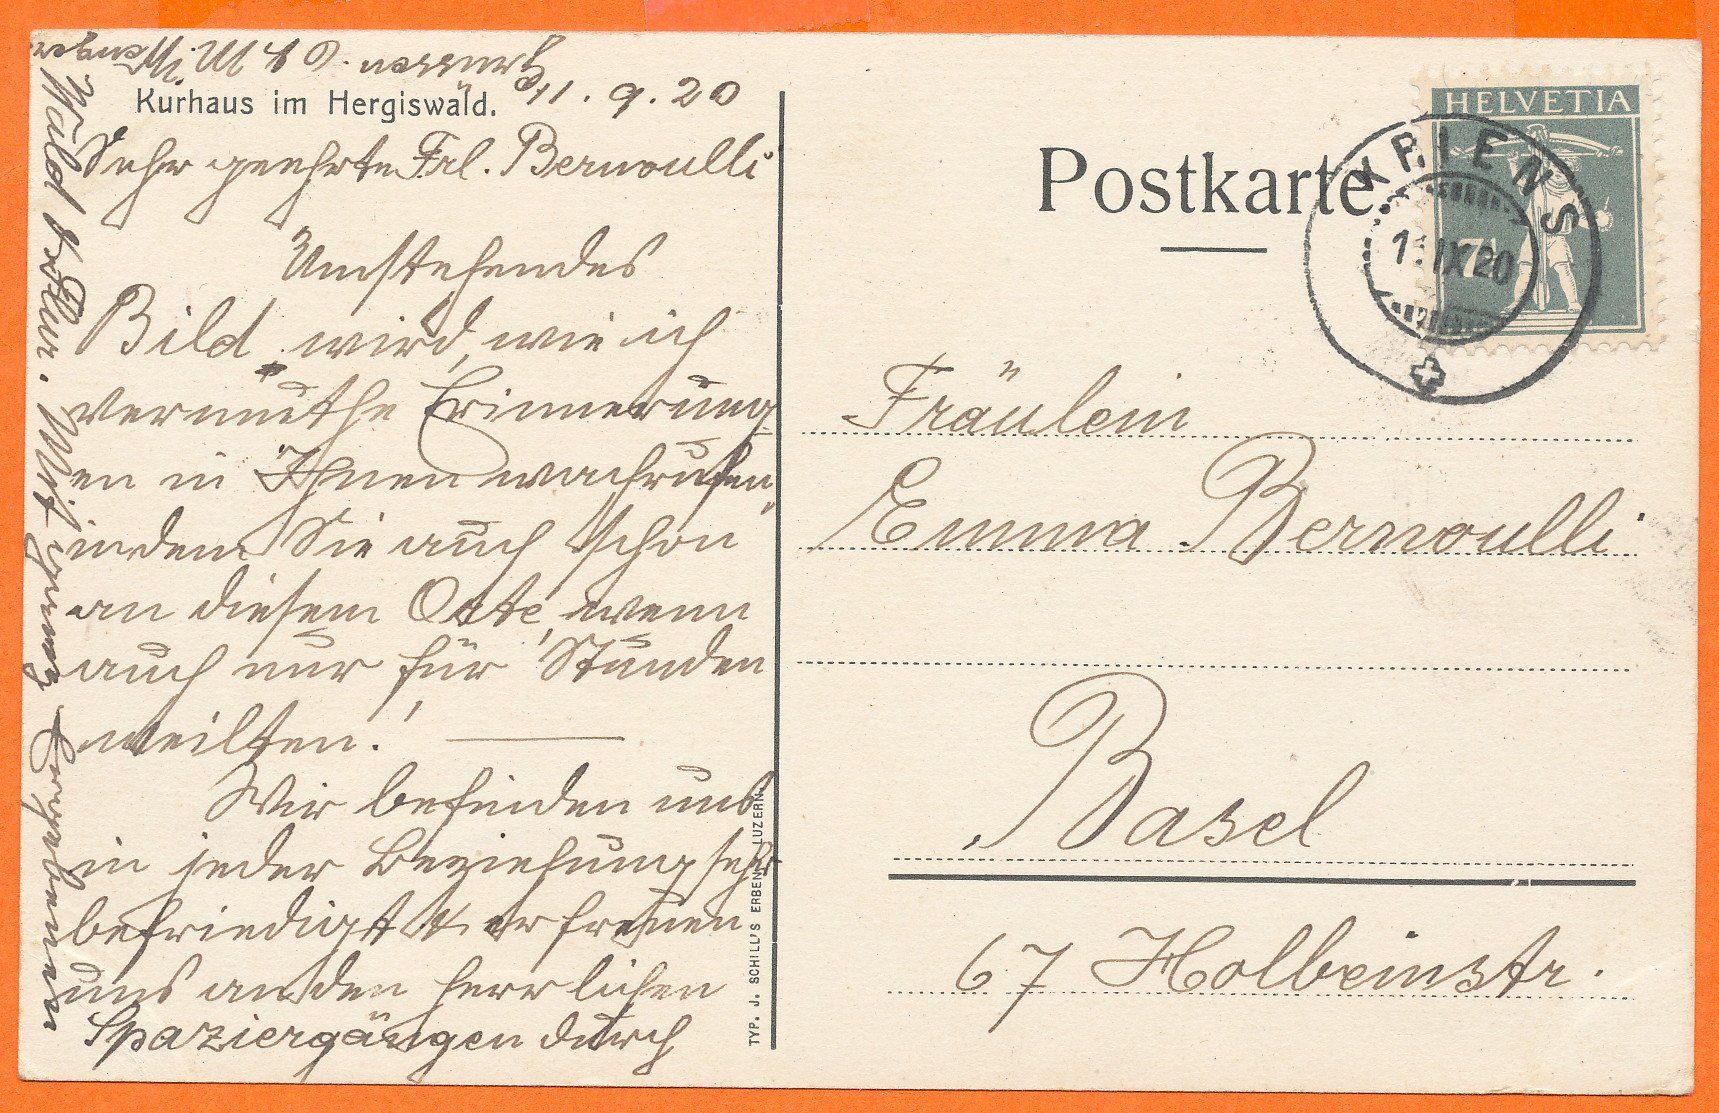 Kurhaus im Hergiswald.
11. 9. 20
Sehr geehrte Frl. Bernoulli
Umstehendes
Bild, wird, wie ich
vermuthe Erinnerung
en in Ihnen wachrufen,
indem Sie auch schon
an diesem Orte, wenn
auch nur für Stunden
weilten!
Wir befinden uns
in jeder Beziehung sehr
befriedigt & erfreuen
uns an den herrlichen
Spaziergängen durch
Wald & Flur. Mit ganz Ergebenen
Grüssen
TYP. J. SCHILL'S ERBEN, LUZERN.
Postkarte.
HELVETIA
7½
KRIENS
11.IX.20
Fräulein
Emma Bernoulli
Basel
67 Holbeinstr.